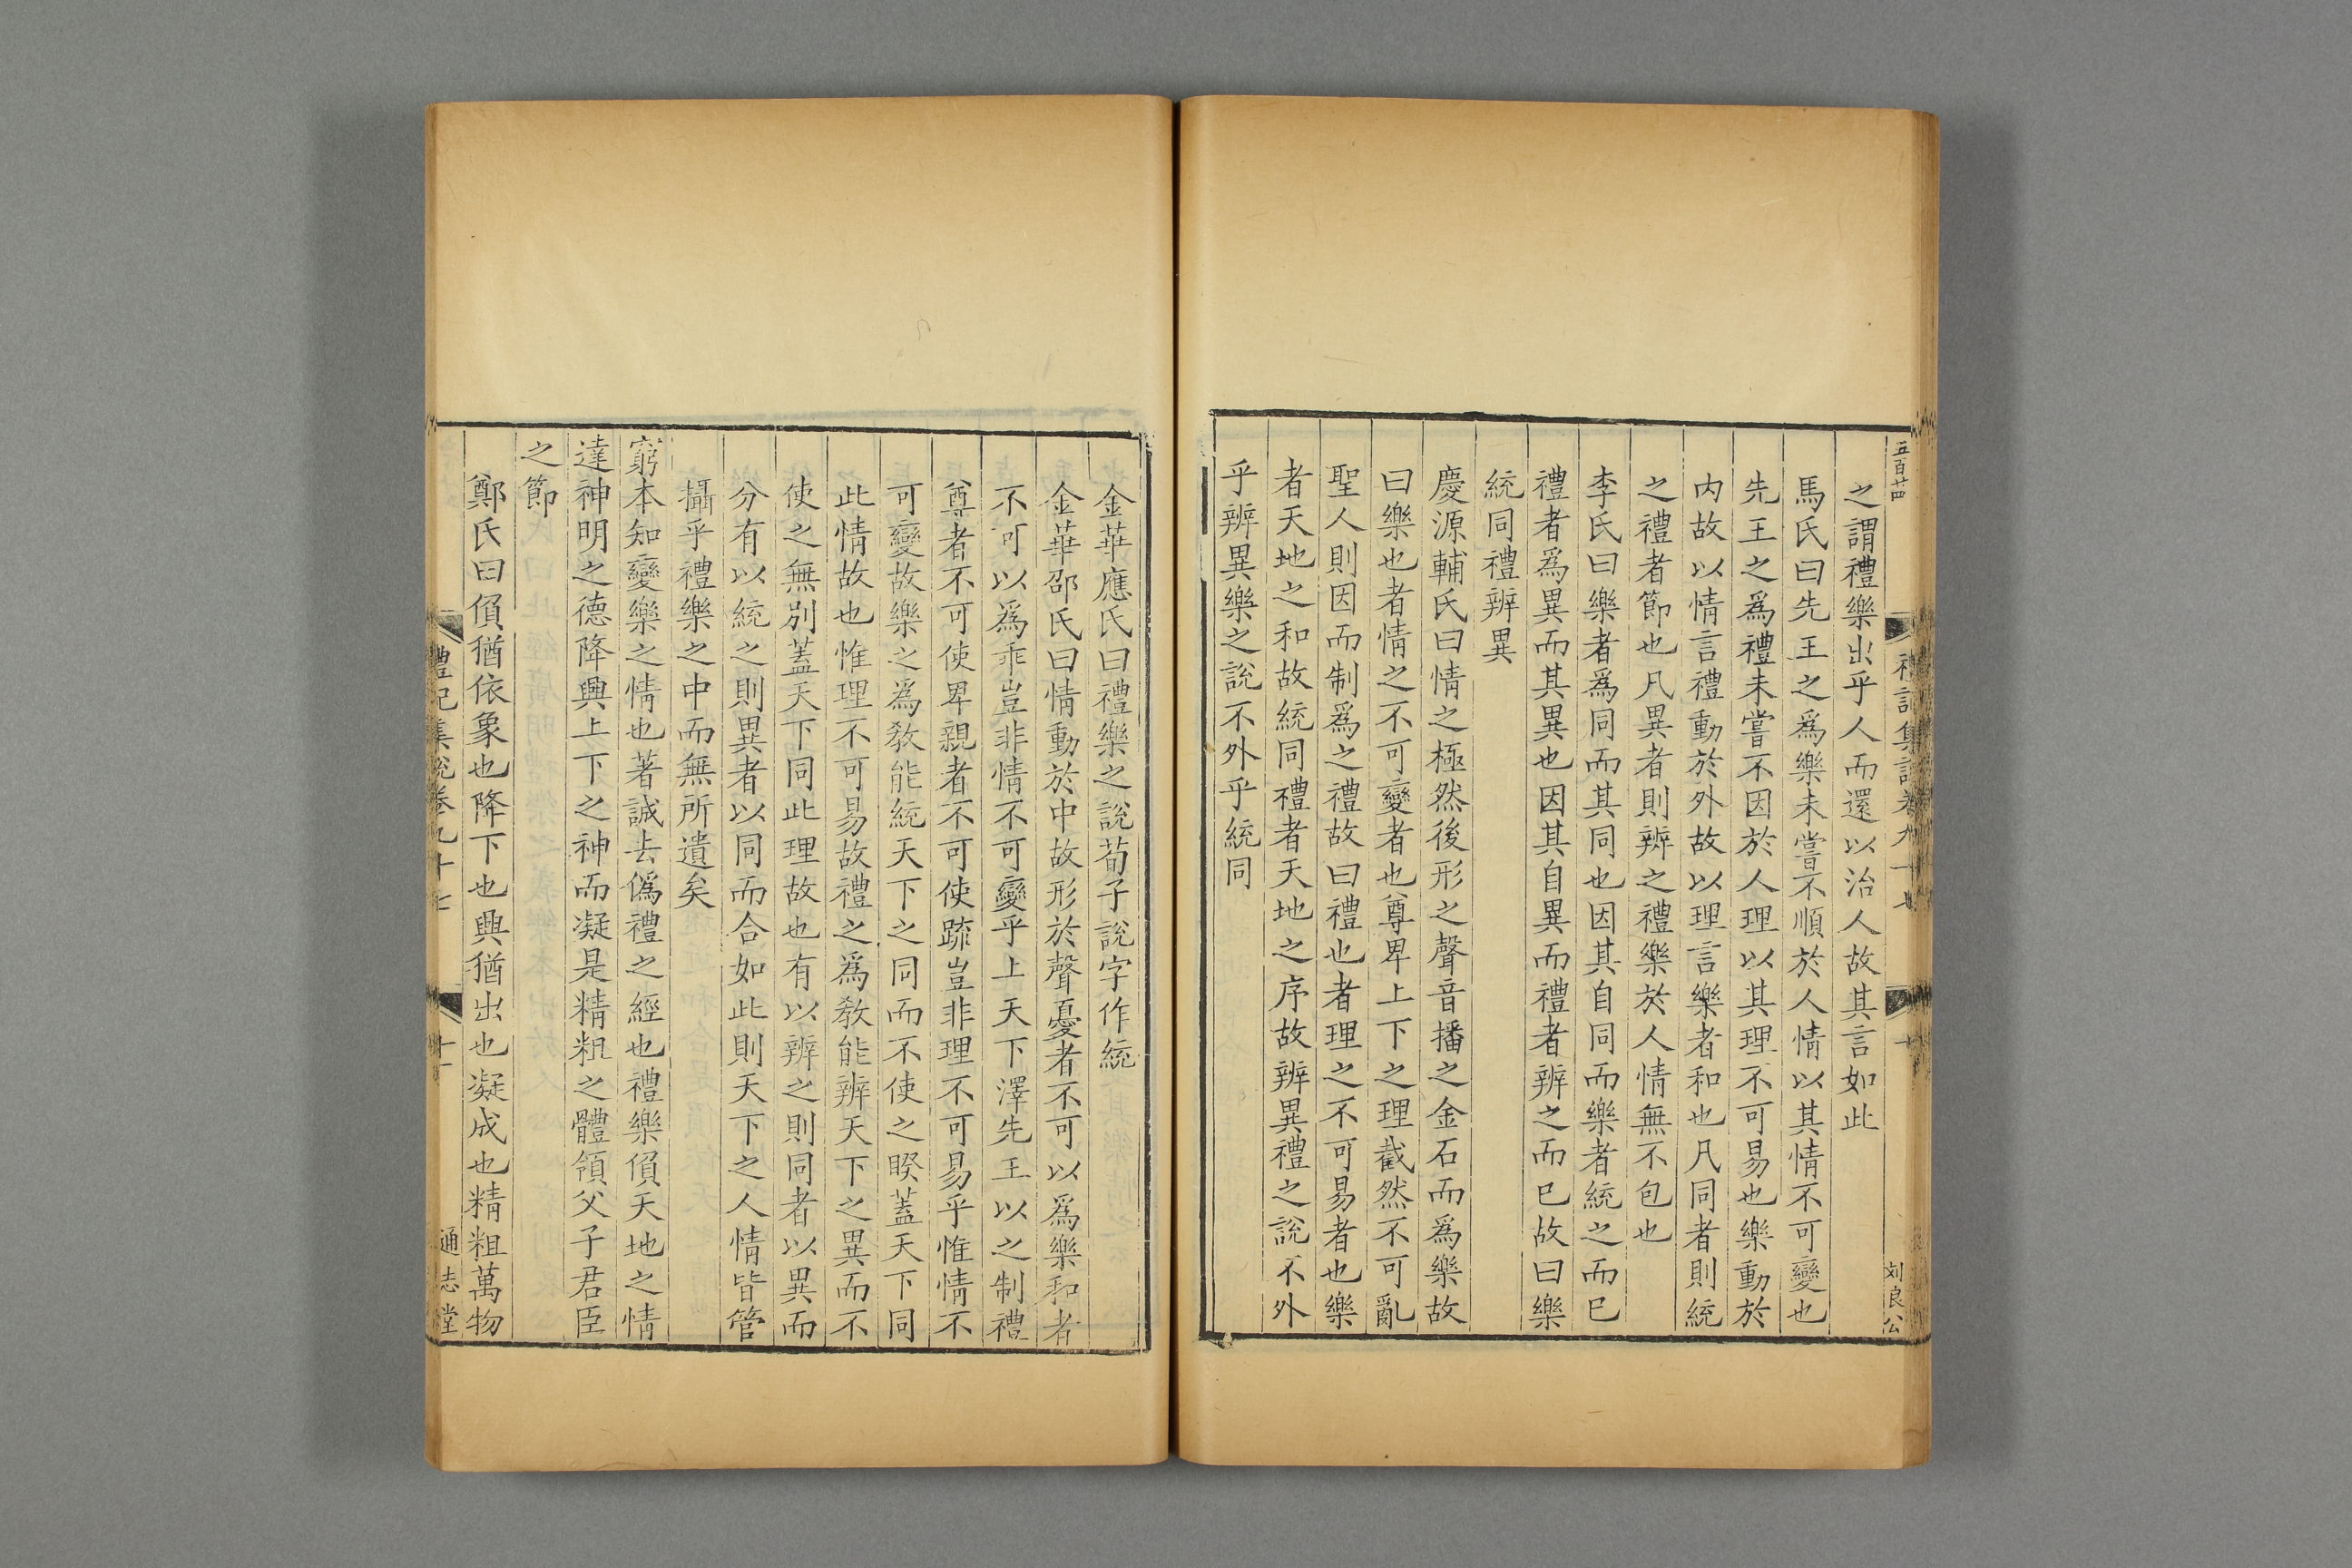 五百廿四
禮記集說卷九十七
十
刘良公
之謂禮樂出乎人而還以治人故其言如此
馬氏曰先王之爲樂未嘗不順於人情以其情不可變也
先王之爲禮未嘗不因於人理以其理不可易也樂動於
内故以情言禮動於外故以理言樂者和也凡同者則統
之禮者節也凡異者則辨之禮樂於人情無不包也
李氏曰樂者爲同而其同也因其自同而樂者統之而已
禮者爲異而其異也因其自異而禮者辨之而已故曰樂
統同禮辨異
慶源輔氏曰情之極然後形之聲音播之金石而爲樂故
曰樂也者情之不可變者也尊卑上下之理截然不可亂
聖人則因而制爲之禮故曰禮也者理之不可易者也樂
者天地之和故統同禮者天地之序故辨異禮之說不外
乎辨異樂之說不外乎統同
金華應氏曰禮樂之說荀子說字作統
金華邵氏曰情動於中故形於聲憂者不可以爲樂和者
不可以爲乖豈非情不可變乎上天下澤先王以之制禮
尊者不可使卑親者不可使疏豈非理不可易乎惟情不
可變故樂之爲敎能統天下之同而不使之睽蓋天下同
此情故也惟理不可易故禮之爲敎能辨天下之異而不
使之無別蓋天下同此理故也有以辨之則同者以異而
分有以統之則異者以同而合如此則天下之人情皆管
攝乎禮樂之中而無所遺矣
窮本知變樂之情也著誠去僞禮之經也禮樂偩天地之情
達神明之德降興上下之神而凝是精粗之體領父子君臣
之節
鄭氏曰偩猶依象也降下也興猶出也凝成也精粗萬物
禮記集說卷九十七
十一
通志堂